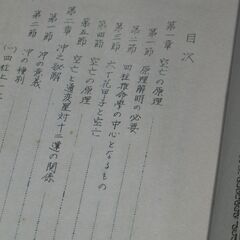 目次
第一章 空亡の原理
第一節 原理解明の必要
第二節 四柱推命學の中心となるもの
第三節 六十花甲子と空亡
第四節 空亡の原理
第五節 空亡と通変星対十二運の関係
第二章 冲之秘解
第一節 冲の意義
第二節 冲の種別
(一)四柱上